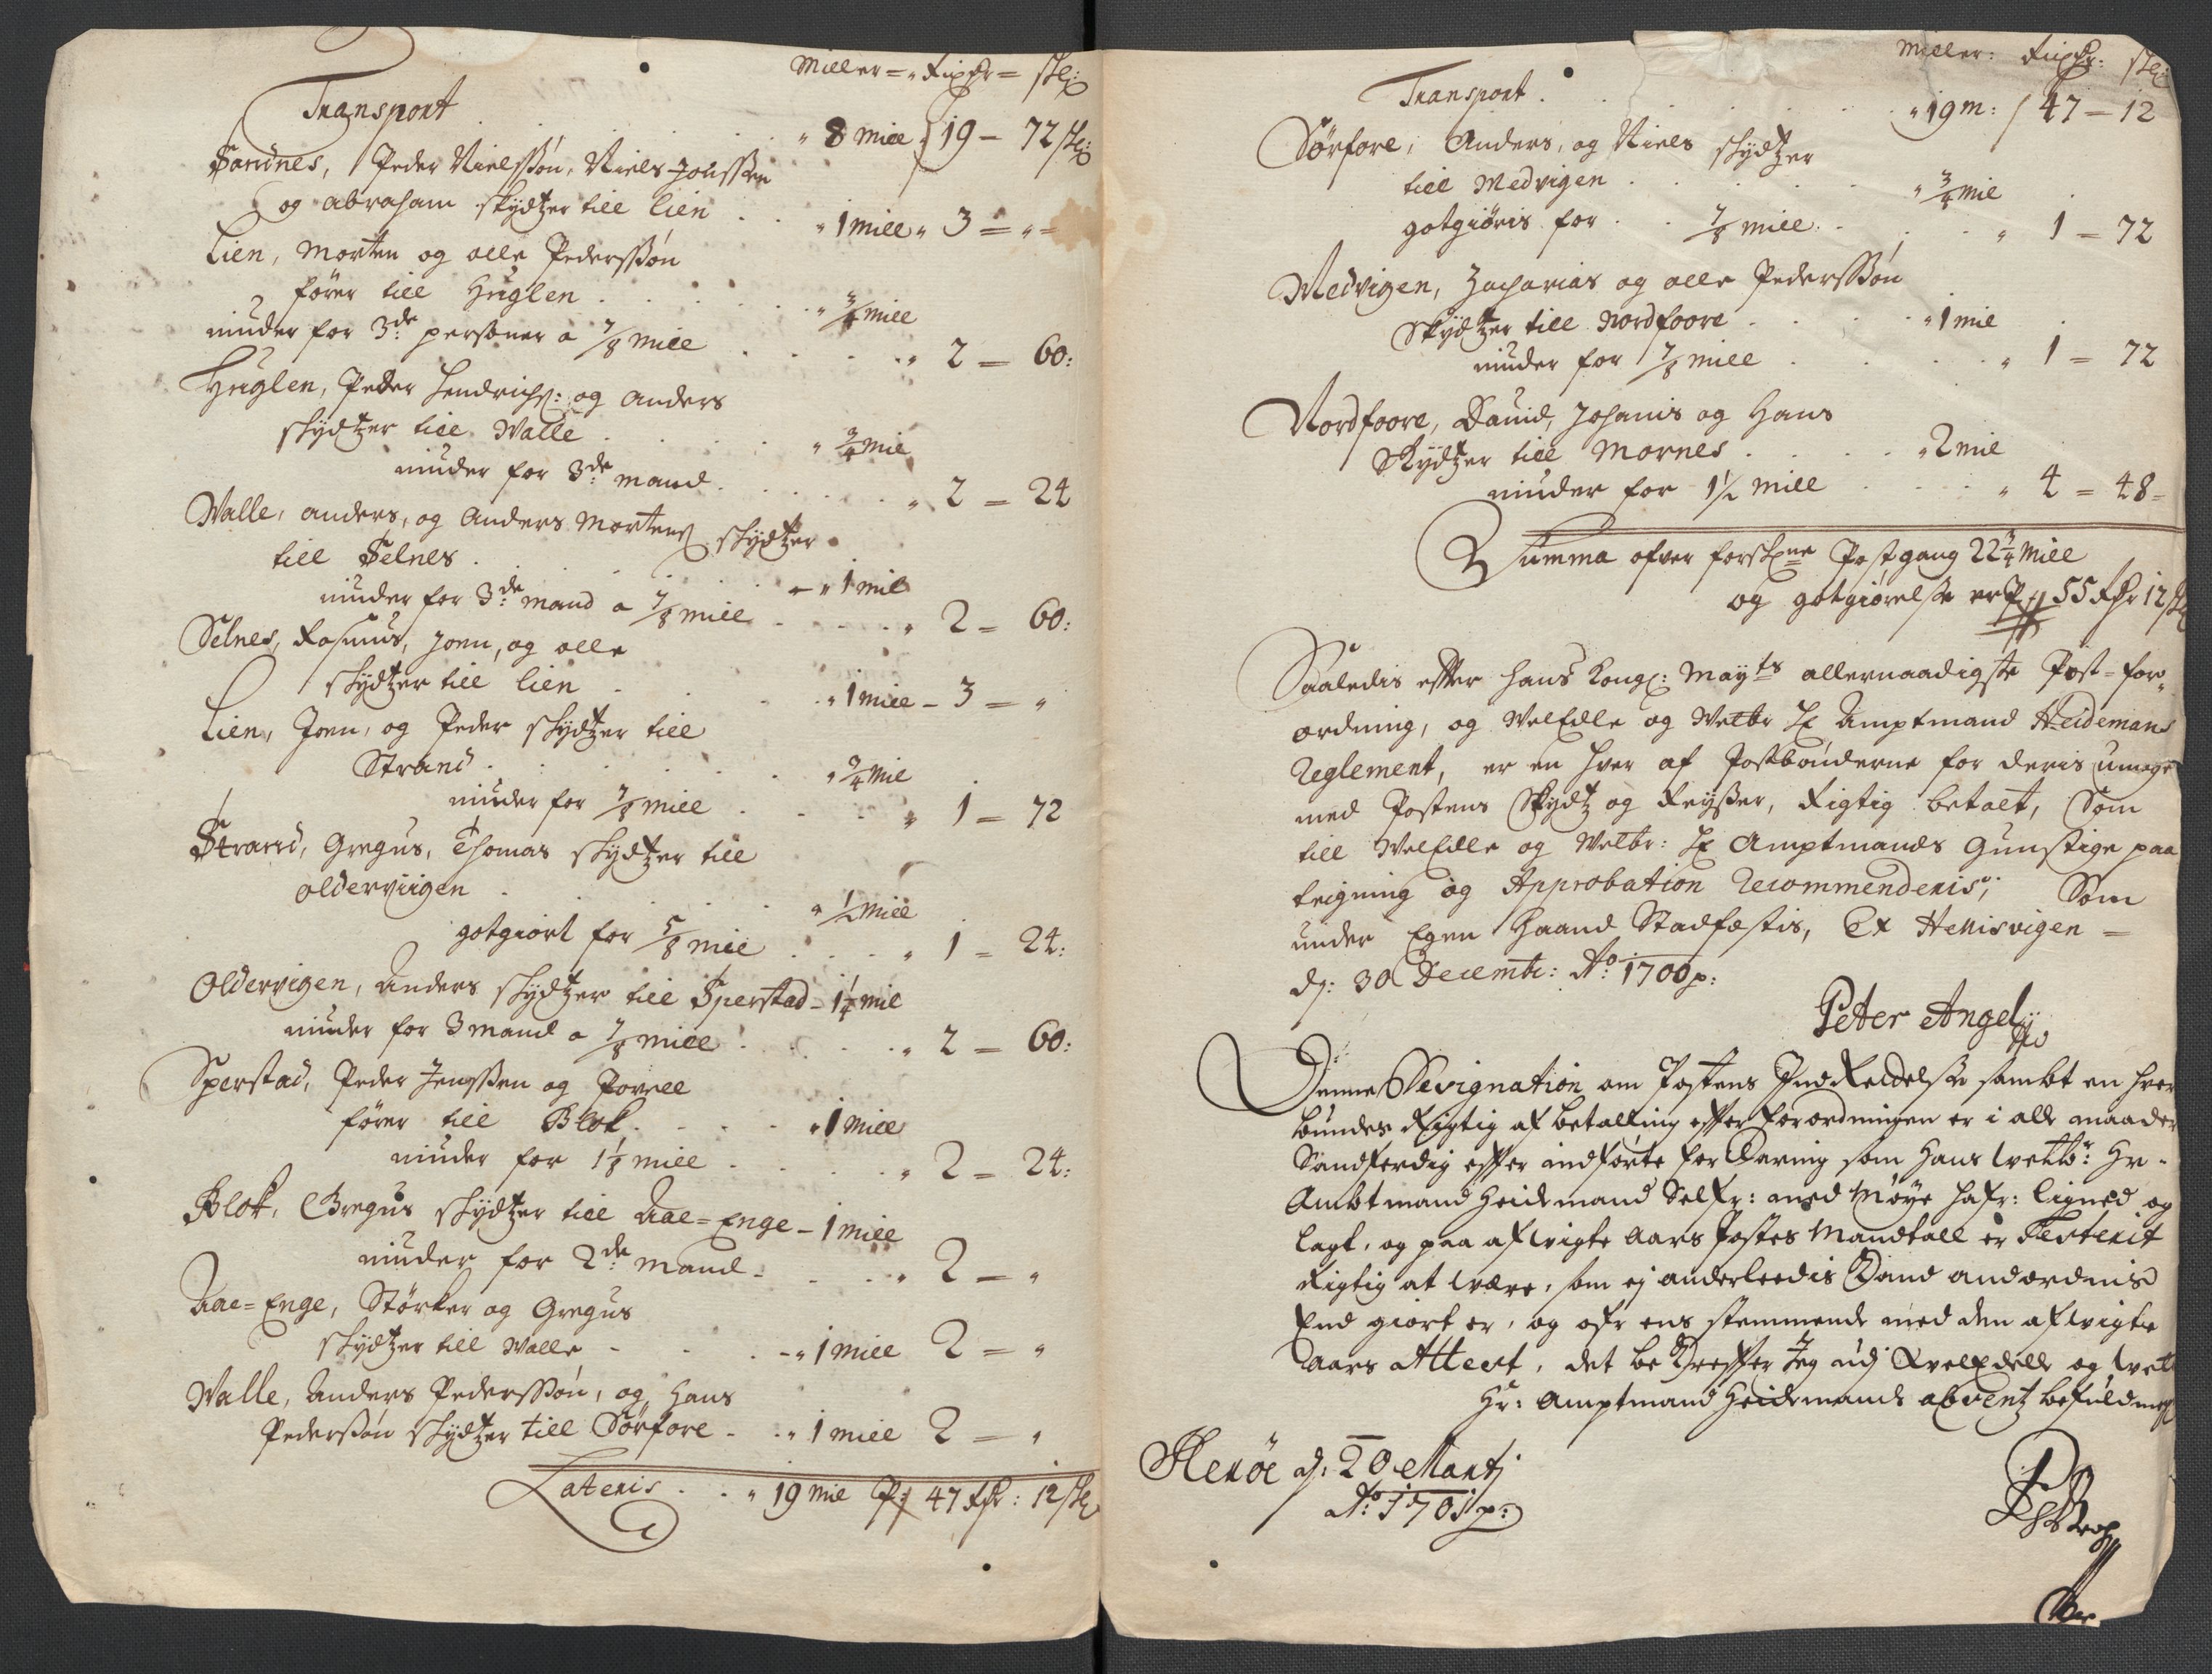 Miller = Rixdr = sk:
Transport . . . . . 8 mill 19 – 72 sk:
Sandnes, Peder Nielssøn, Niels Jonssen
og abraham skydtzer till Lien . . 1 mill 3 = " =
Lien, Morten og olle Pedersøn
fører till Huglen . . . . . 3/4 mill
niuder for 3de personer a 7/8 mill . . . . 2 = 60:
Huglen, Peder Hendrichs: og Anders
skydtzer till Walle . . . . 3/4 mil
niuder for 3de mand . . . . . 2 = 24
Walle, anders, og Anders Mortens skydtzer
till Selnes . . . . . 1 mil
niuder for 3de mand a 7/8 mill . . . . 2 = 60:
Selnes, Rasmus, Joen, og olle
skydtzer till Lien . . . . 1 mill – 3 = "
Lien, Joen, og Peder skydtzer till
Strand . . . . . 3/4 mil
niuder for 7/8 mill . . . . 1 = 72
Strand, Gregus, Thomas skydtzer till
olderviigen . . . . . 1/2 mill
gotgiort for 5/8 mill . . . . 1 = 24:
Oldervigen, Anders skydtzer till Sperstad – 1 1/4 mil
niuder for 3 mand a 7/8 mill . . . . 2 = 60:
Sperstad, Peder Jenssen og Povell
fører till Blok . . . . 1 mill
niuder for 1 1/8 mill . . . . 2 = 24:
Blok, Gregus skydtzer till Aae=Enge – 1 mill
niuder for 2de mand . . . . 2 = "
Aae=Enge, Størker og Gregus
skydtzer till Walle – . . . 1 mill 2 = "
Walle, Anders Pederssøn, og Hans
Pederssøn skydtzer till Sørfore – . . 1 mill 2 = "
Lateris . . 19 mil 47 Rdr: 12 sk
Miller: Rixdr: sk:
Transport . . . . 19 m: / 47 – 12
Sørfore, Anders, og Niels skydtzer
till Medvigen . . . . . 3/4 mil
gotgiøris for . . 7/8 mill . . . . 1 = 72
Medvigen, Zacharias og olle Pederssøn
Skydtzer till Nordfoore . . . . 1 mil
niuder for 7/8 mill . . . . 1 = 72
Nordfoore, David, Johanis og Hans
Skydtzer till Mornes . . . . 2 mil
niuder for 1 1/2 mill . . . 4 = 48 =
Summa ofver forskrne Postgang 22 3/4 Mill
og gotgiørelse er 55 Rdr 12 sk
Saaledis efter hans Kongl: Mayts allernaadigste Post=for=
ordning, og WelEdle og Welbr Hr Amptmand Heidemans
Reglement, er en hver af Postbønderne for deris umage
med Postens Skydtz og Reysser, Rigtig betalt, Som
till WelEdle og Welbr: Hr Amptmands Gunstige paa
teigning og Approbation Recommenderis; Som
under Egen Haand Stadfæstis, Ex Hemisvigen =
dj: 30 Decembr: Ao: 1700 p:
Peter Angel
Denne Designation om Postens Indrettelse sambt en hver
bundes Rigtig af betalling efter forordningen er i alle maader
Sandferdig efter indførte forklaring som Hans welb: Hr.
Ambtmand Heidemand Selfr: med Møye hafr: lignet og
lagt, og paa afvigte aars Postes Mandtall er Testerit
Rigtig at være, som ej anderleedis kand andordnis
End giort er, og ofr ens stemmende med den afvigte
aars Attest, det bekrefter Jeg udj WelEdelle og welb
Hr: Amptmand Heidemands absentz befuldmegt
Herøe dj: 20 Martj
Ao: 1701 p: